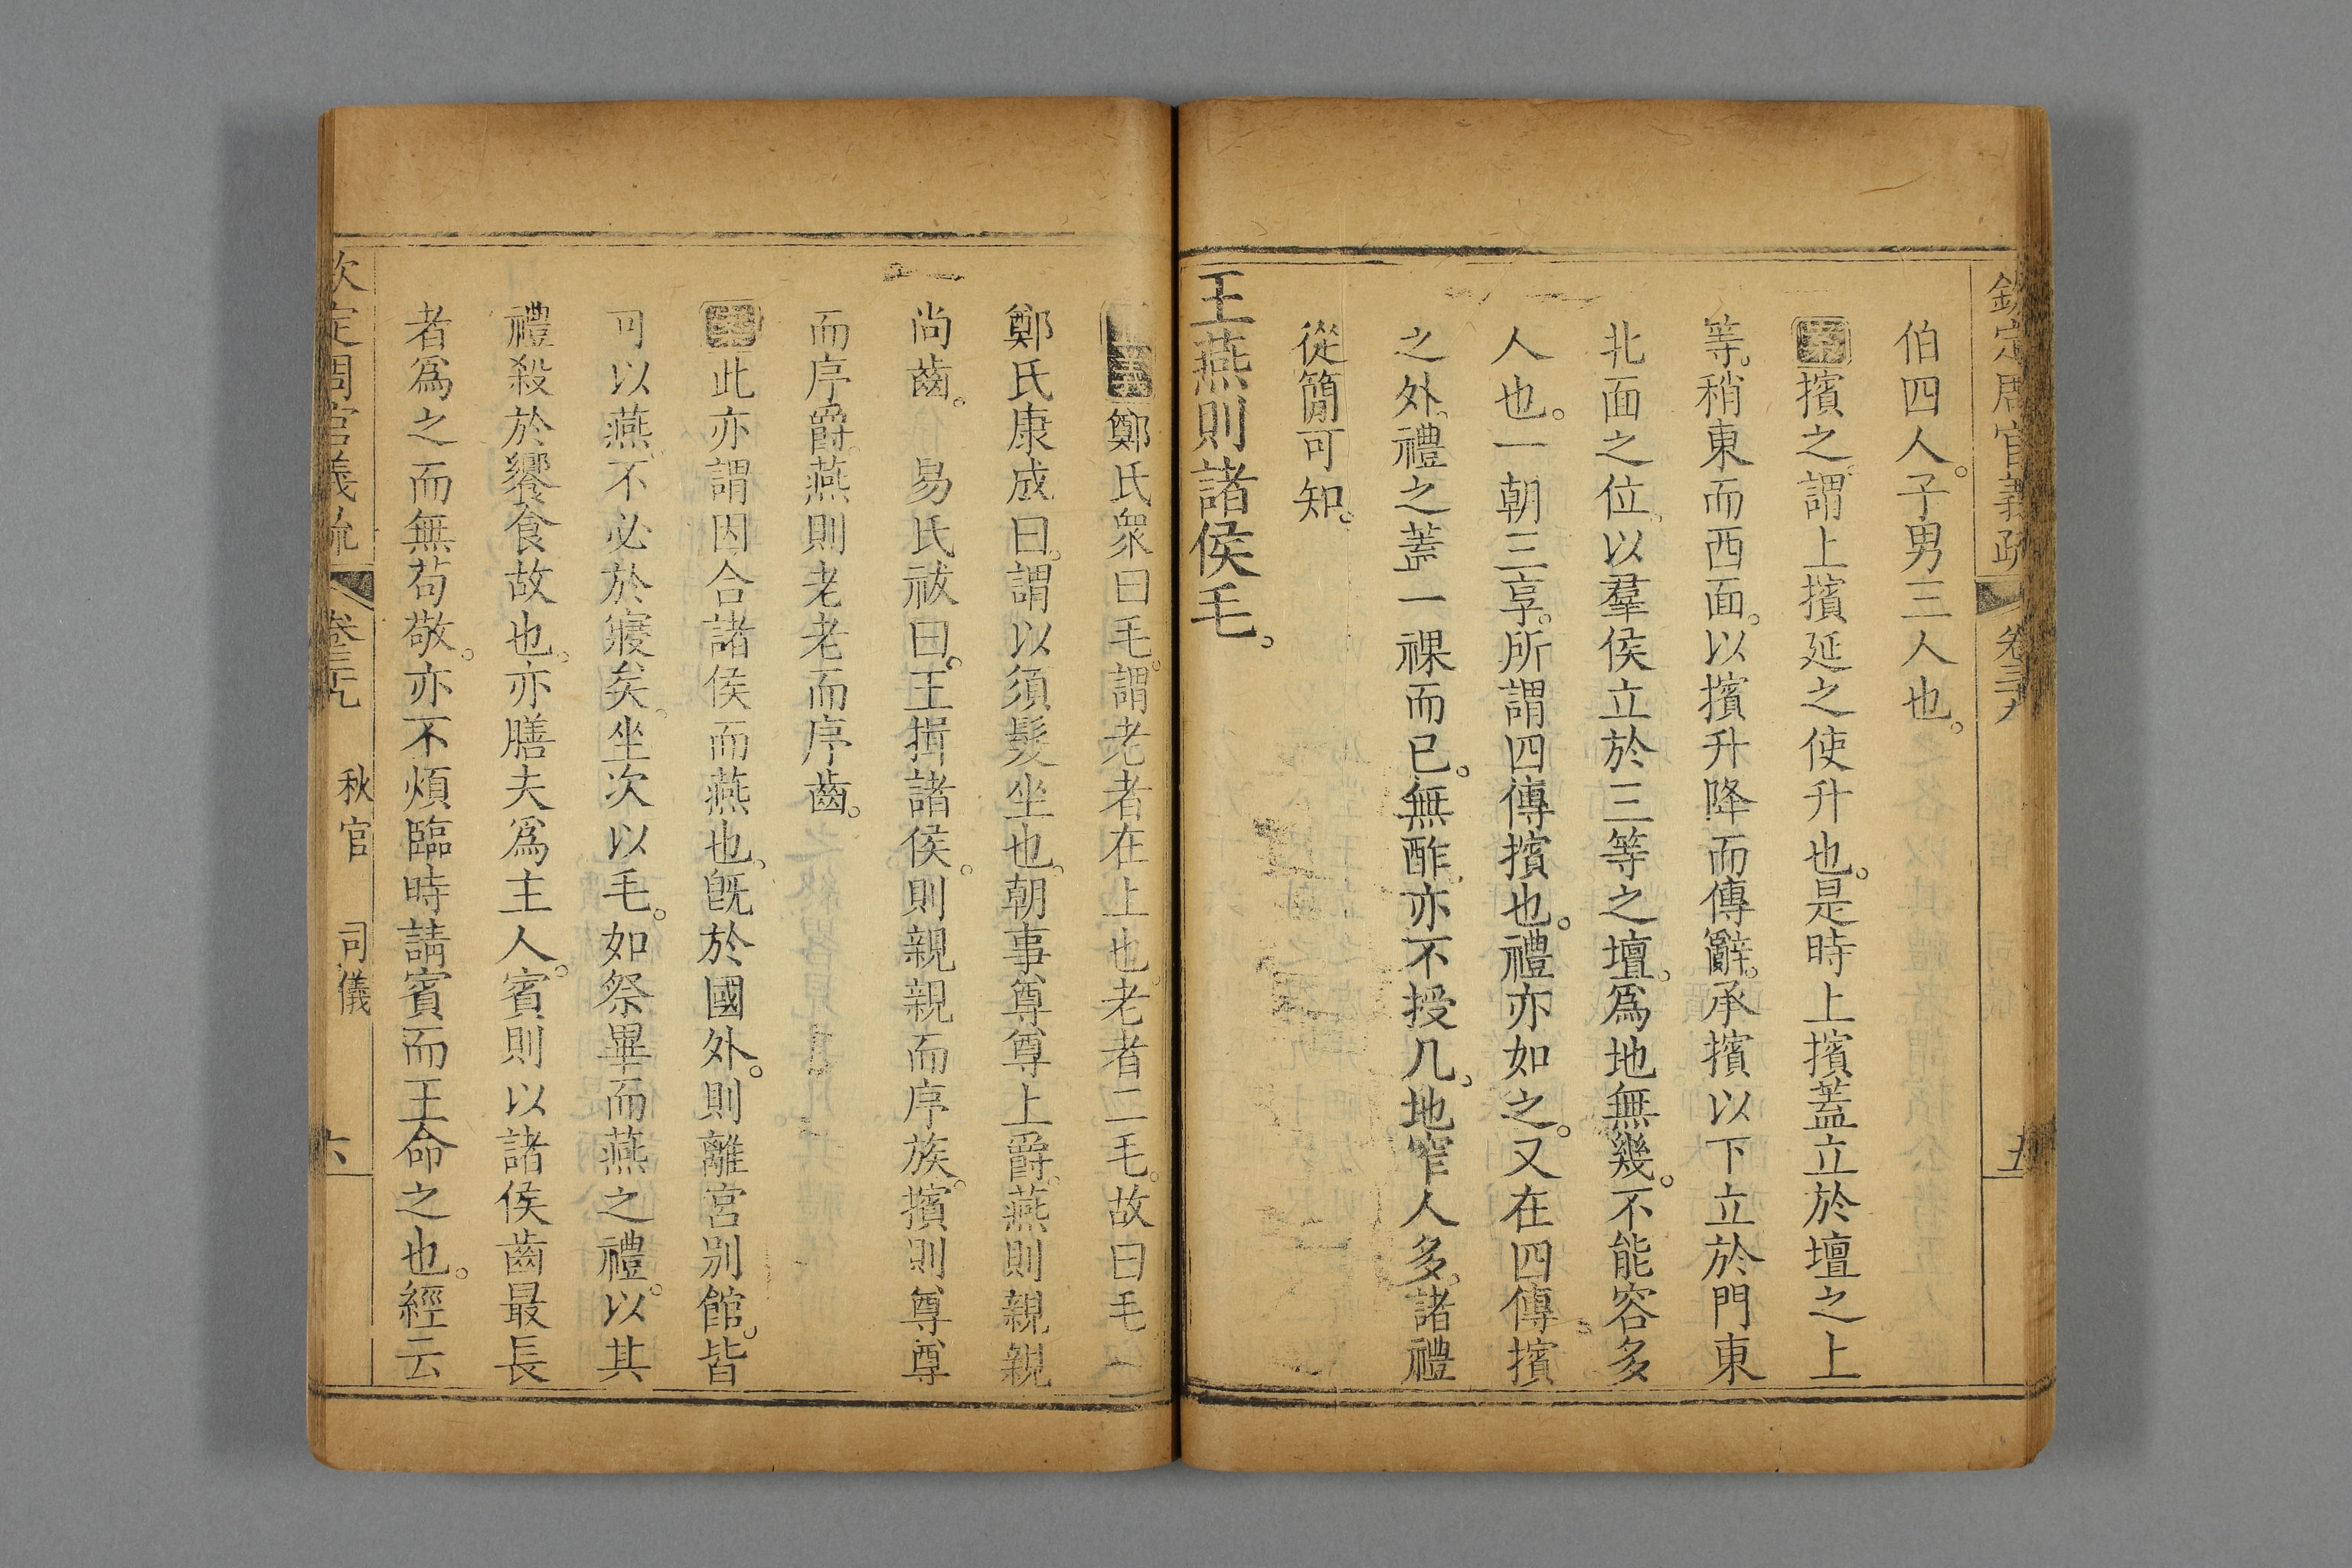 欽定周官義疏 卷三十九 五
伯四人。子男三人也。
案擯之。謂上擯延之使升也。是時上擯蓋立於壇之上
等。稍東而西面。以擯升降而傳辭。承擯以下立於門東
北面之位。以羣侯立於三等之壇。爲地無幾。不能容多
人也。一朝三享。所謂四傳擯也。禮亦如之。又在四傳擯
之外。禮之蓋一祼而已。無酢亦不授几。地窄人多。諸禮
從簡可知。
王燕則諸侯毛。
鄭氏眾曰毛。謂老者在上也。老者二毛。故曰毛
鄭氏康成曰。謂以須髮坐也。朝事尊尊上爵。燕則親親
尚齒。 易氏祓曰。王揖諸侯。則親親而序族。擯則尊尊
而序爵。燕則老老而序齒。
此亦謂因合諸侯而燕也。旣於國外。則離宮别館。皆
可以燕。不必於寢矣。坐次以毛。如祭畢而燕之禮。以其
禮殺於饗食故也。亦膳夫爲主人。賓則以諸侯齒最長
者爲之而無苟敬。亦不煩臨時請賓而王命之也。經云
欽定周官義疏 卷三十九 秋官 司儀 六